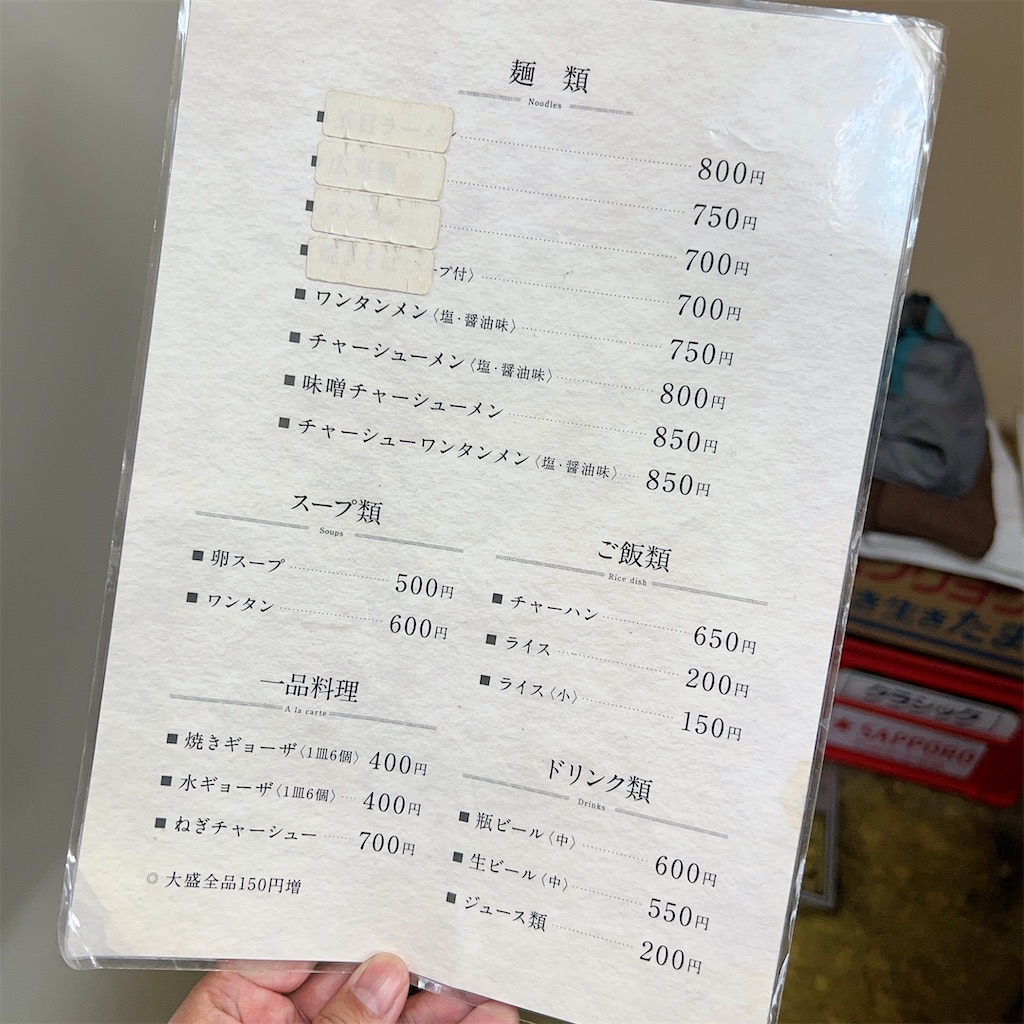 麺類
Noodles
800円
750円
700円
プ付〉 700円
■ ワンタンメン〈塩・醤油味〉 750円
■ チャーシューメン〈塩・醤油味〉 800円
■ 味噌チャーシューメン 850円
■ チャーシューワンタンメン〈塩・醤油味〉 850円
スープ類
Soups
■ 卵スープ 500円
■ ワンタン 600円
ご飯類
Rice dish
■ チャーハン 650円
■ ライス 200円
■ ライス〈小〉 150円
一品料理
A la carte
■ 焼きギョーザ〈1皿6個〉 400円
■ 水ギョーザ〈1皿6個〉 400円
■ ねぎチャーシュー 700円
◎ 大盛全品150円増
ドリンク類
Drinks
■ 瓶ビール〈中〉 600円
■ 生ビール〈中〉 550円
■ ジュース類 200円
き生きたま
クラシック
★ SAPPORO